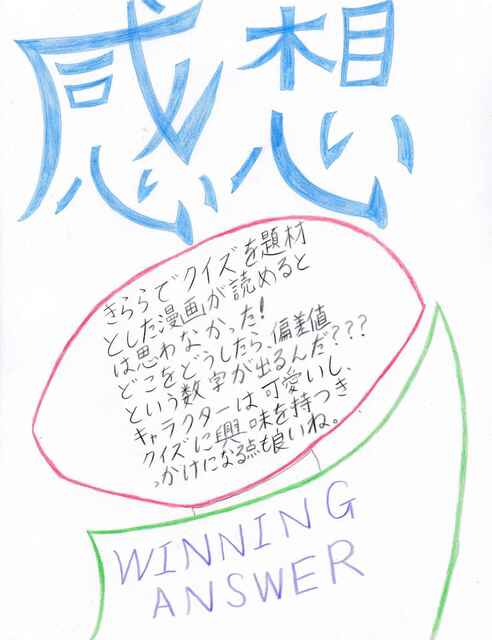 感想
きららでクイズを題材
とした漫画が読めると
は思わなかった!
どこをどうしたら、偏差値
という数字が出るんだ???
キャラクターは可愛いし、
クイズに興味を持つき
っかけになる点も良いね。
WINNING
ANSWER